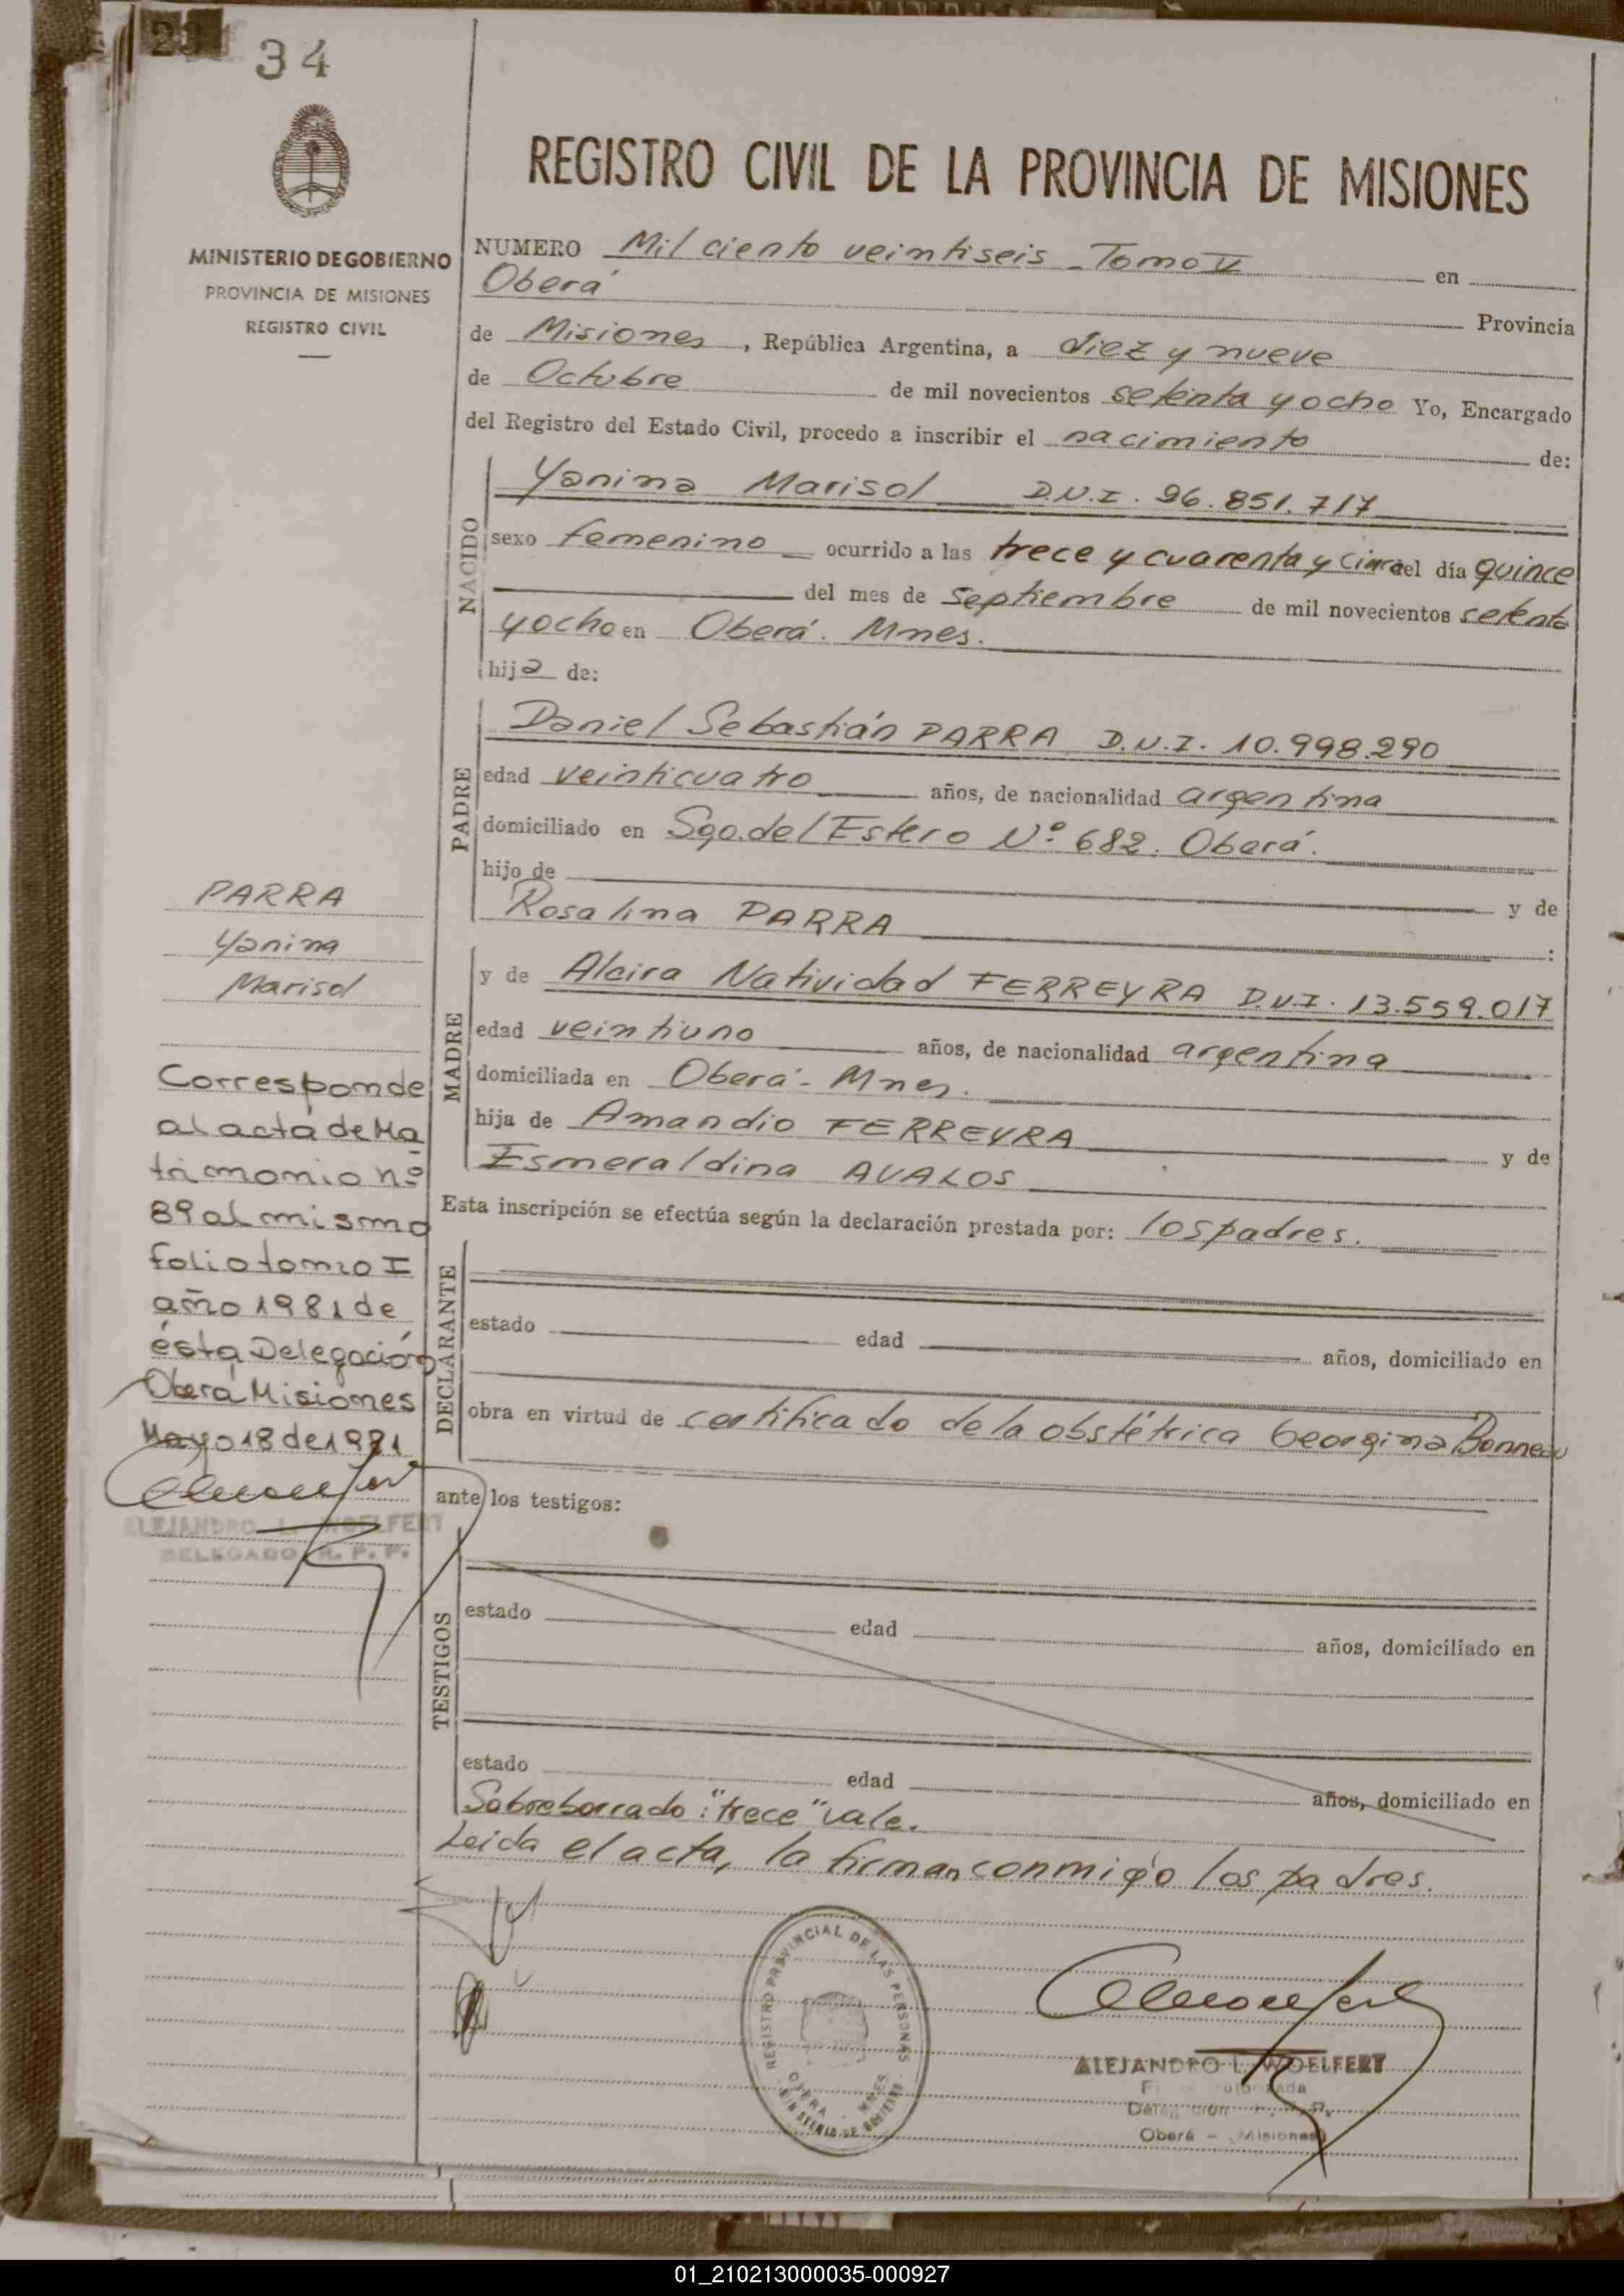 34
REGISTRO CIVIL DE LA PROVINCIA DE MISIONES
MINISTERIO DE GOBIERNO
PROVINCIA DE MISIONES
REGISTRO CIVIL
NUMERO Mil ciento veintiseis - Tomo V en
Oberá Provincia
de Misiones, República Argentina, a diez y nueve
de Octubre de mil novecientos setenta y ocho Yo, Encargado
del Registro del Estado Civil, procedo a inscribir el nacimiento de:
NACIDO
Yanina Marisol D.N.I. 26.851.717
sexo femenino ocurrido a las trece y cuarenta y cinco del día quince
del mes de Septiembre de mil novecientos setenta
y ocho en Oberá. Mnes.
hija de:
PADRE
Daniel Sebastián PARRA D.N.I. 10.998.290
edad veinticuatro años, de nacionalidad argentina
domiciliado en Sgo. del Estero Nº 682. Oberá.
hijo de y de
Rosalina PARRA :
MADRE
y de Alcira Natividad FERREYRA D.N.I. 13.559.017
edad veintiuno años, de nacionalidad argentina
domiciliada en Oberá - Mnes.
hija de Amandio FERREYRA y de
Esmeraldina AVALOS
Esta inscripción se efectúa según la declaración prestada por: los padres.
DECLARANTE
estado edad años, domiciliado en
obra en virtud de certificado de la obstétrica Georgina Bonneau
ante los testigos:
TESTIGOS
estado edad años, domiciliado en
estado edad años, domiciliado en
Sobreborrado: "trece" vale.
Leida el acta, la firman conmigo los padres.
PARRA
Yanina
Marisol
Corresponde
al acta de Ma
trimonio nº
89 al mismo
folio tomo I
año 1981 de
ésta Delegación
Oberá Misiones
Mayo 18 de 1981
ALEJANDRO L. WOELFERT
DELEGADO R. P. P.
REGISTRO PROVINCIAL DE LAS PERSONAS
OBERA - MNES.
MINISTERIO DE GOBIERNO
ALEJANDRO L. WOELFERT
Oberá - Misiones
01_210213000035-000927